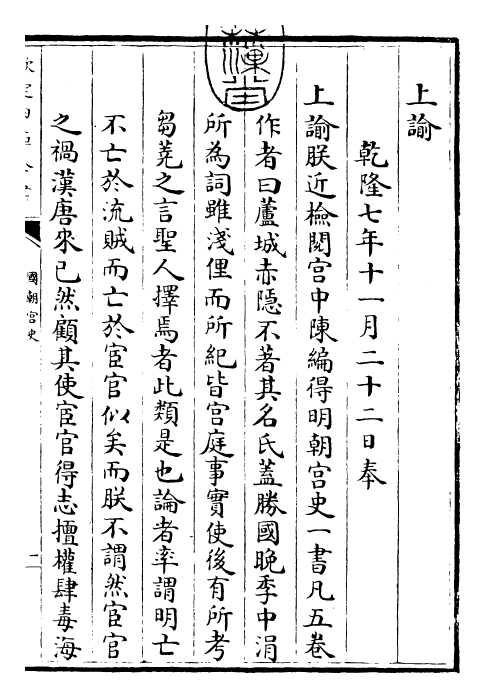 上諭
乾隆七年十一月二十二日奉
上諭朕近檢閱宫中陳編得明朝宫史一書凡五卷
作者曰蘆城赤隱不著其名氏蓋勝國晚季中涓
所為詞雖淺俚而所紀皆宫庭事實使後有所考
芻蕘之言聖人擇焉者此類是也論者率謂明亡
不亡於流賊而亡於宦官似矣而朕不謂然宦官
之禍漢唐來已然顧其使宦官得志擅權肆毒海
國朝宫史